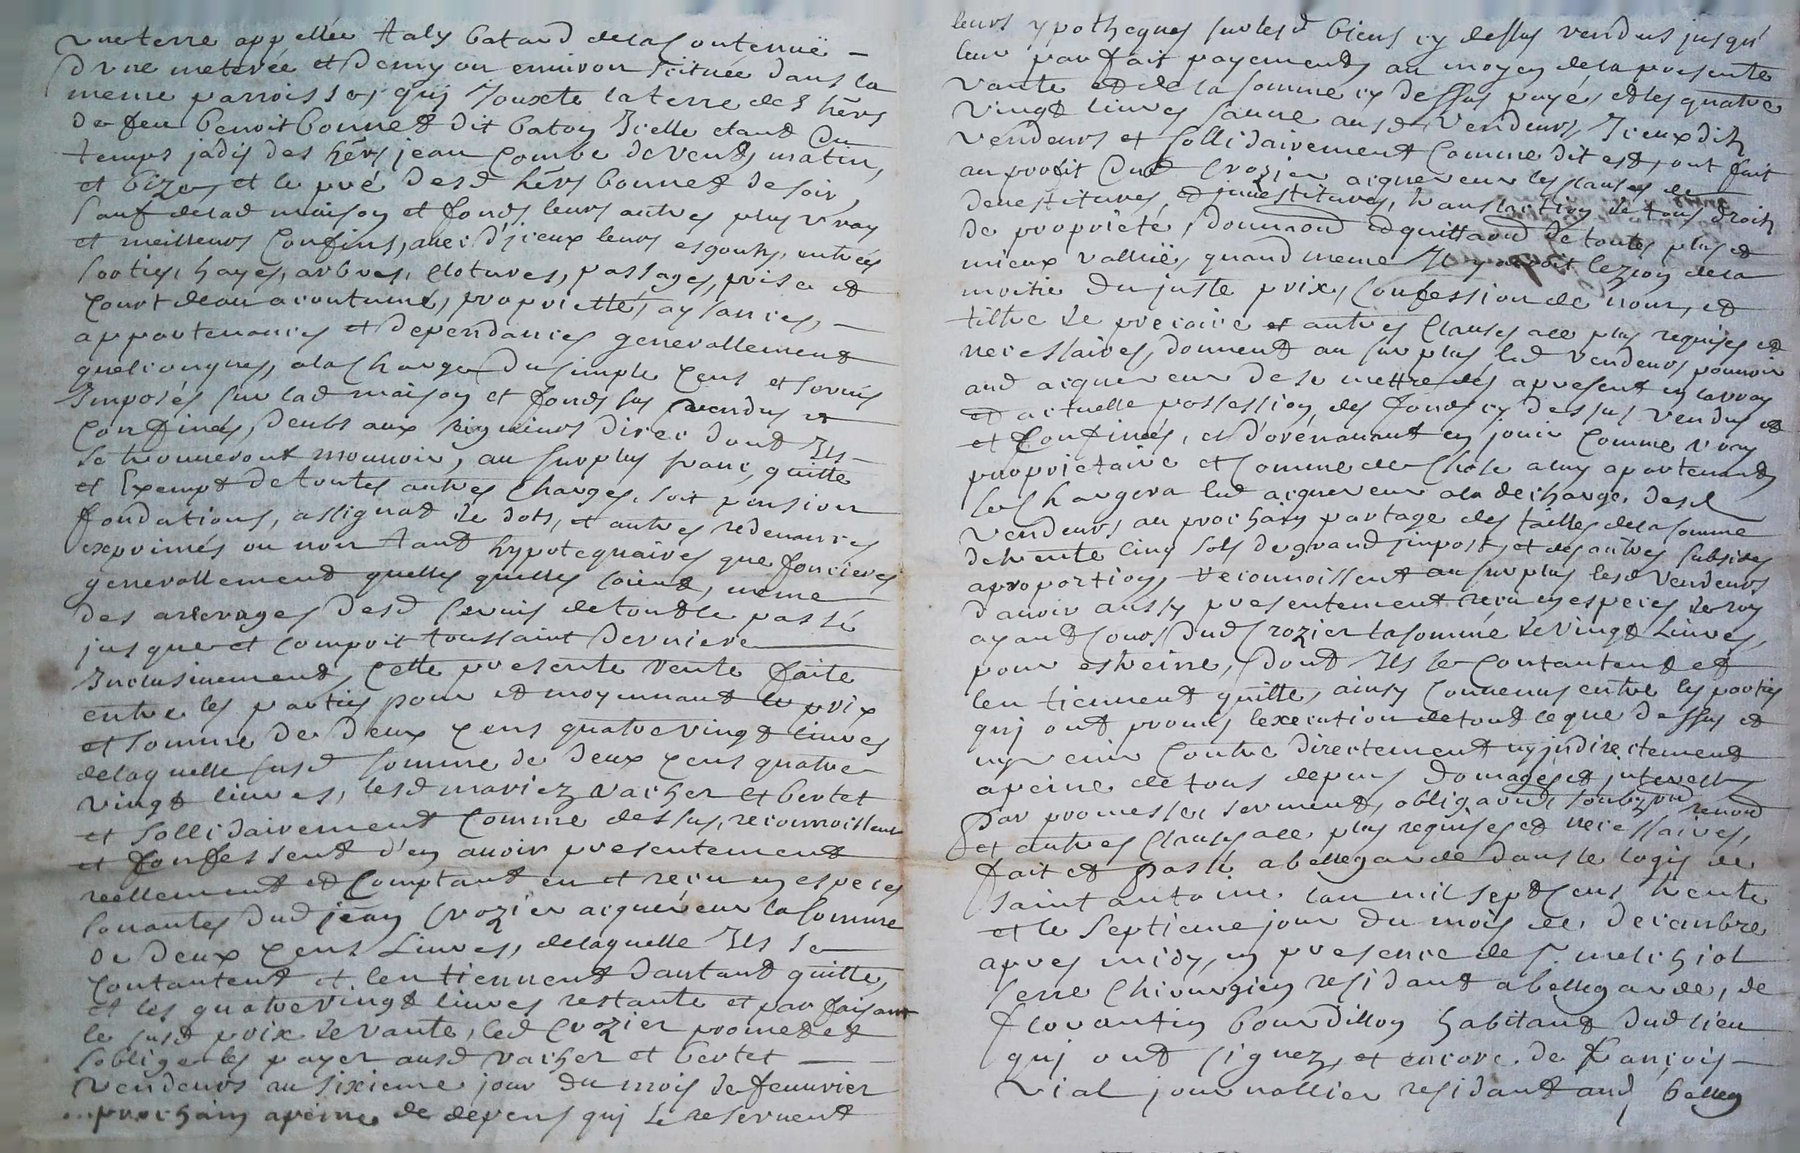 une terre appellée Haly batard de la Contenuë
d'une meterée et demy ou environ scituée dans la
meme parroisse, quj Jouxte la terre des hērs
de feu benoit bonned dit batoy Jcelle etant du
temps jadis des hērs jean Combe de vend, matin,
et bize, et le pré desd hērs bonned de soir,
sauf de lad maison et fonds leurs autres plus vray
et meilleurs Confins, avec d'jceux leurs esgouts, entrées
sorties, hayes, arbres, Clotures, passages, prise et
Court deau acoutumé, proprietté, aysances,
appartenances et dependances generallement
quelconques, ala Charge du simple Cens et servis
Imposés sur lad maison et fonds sus vendus et
Confinés, deubs aux seigneurs direc dond Ils
se trouveront mouvoir, au surplus franc, quitte
et Exempt de toutes autres Charges, soit pension
fondations, assignad de dots, et autres redevances
exprimés ou non tant hypotequaires que foncieres
generallement quelles quelles soient, meme
des arrerages desd servis de tout le passé
jusque et Compris toussaint derniere
Inclusivement, Cette presente vente faite
entre les parties pour et moyennant le prix
et somme de deux Cens quatre vingt livres
de laquelle susd somme de deux Cens quatre
vingt livres, lesd mariez vacher et bertet
et sollidairement Comme dessus, reconnoissent
et Confessent d'en avoir presentement
reellement et Comptant eu et recu en especes
sonantes dud jean Crozier acquereur la somme
de deux Cens Livres, de laquelle Ils se
Contantent et len tiennent dautant quitte,
et les quatre vingt livres restante et parfaisant
le susd prix de vante, led Crozier promet et
soblige les payer ausd vacher et bertet
vendeurs au sixieme jour du mois de fevrier
prochain apeine de depens quj se reservent
leurs ypotheques sur lesd biens cy dessus vendus jusqu'
leur parfait payement, au moyen de la presente
vante et de la somme cy dessus payé, et les quatre
vingt livres sauve ausd vendeurs, Jceux dits
vendeurs et sollidairement Comme dit est, ont fait
au profit dud Crozier acquereur les clauses de
devestitures, et jnvestitures, translation de tous droits
de propriété, donnant et quittant de toutes plus et
mieux valluës, quand meme Il y auroit lezion de la
moitie du juste prix, Confession de nom, et
tiltre de precaire et autres Clauses ace plus requises et
necessaires, donnent au surplus lesd vendeurs pouvoir
aud acquereur de se mettre dés apresent en la vray
et actuelle possession des fonds cy dessus vendus et
et Confinés, et d'orénavant en jouir Comme vray
propriétaire et Comme de Chose a luy apartenant,
se Chargera led acquereur ala decharge desd
vendeurs au prochain partage des tailles de la somme
de trente Cinq sols de grand jmpost, et des autres subsides
aproportion, reconnoissent au surplus lesd vendeurs
d'avoir aussy presentement recu en especes de roy
ayant Cours dud Crozier la somme de vingt Livres,
pour estreine, dont Ils se Contantent et
len tiennent quitte, ainsy Convenus entre les parties
quj ont promis lexecution de tout ce que dessus et
ny venir Contre directement ny jndirectement
apeine de tous depens domages et jnterests
Par promesses serment, obligation, soubzmis renond
et autres Clauses ace plus requises et necessaires,
fait et Passé abellegarde dans le logis de
saint antoine, lan mil sept Cens trente
et le septieme jour du mois de decembre
apres midy, en presence de sr. melchiol
serre Chirurgien residant abellegarde, de
florantin bourdillon habitant dud lieu
quj ont signez, et encore de francois
vial journallier residant aud belleg